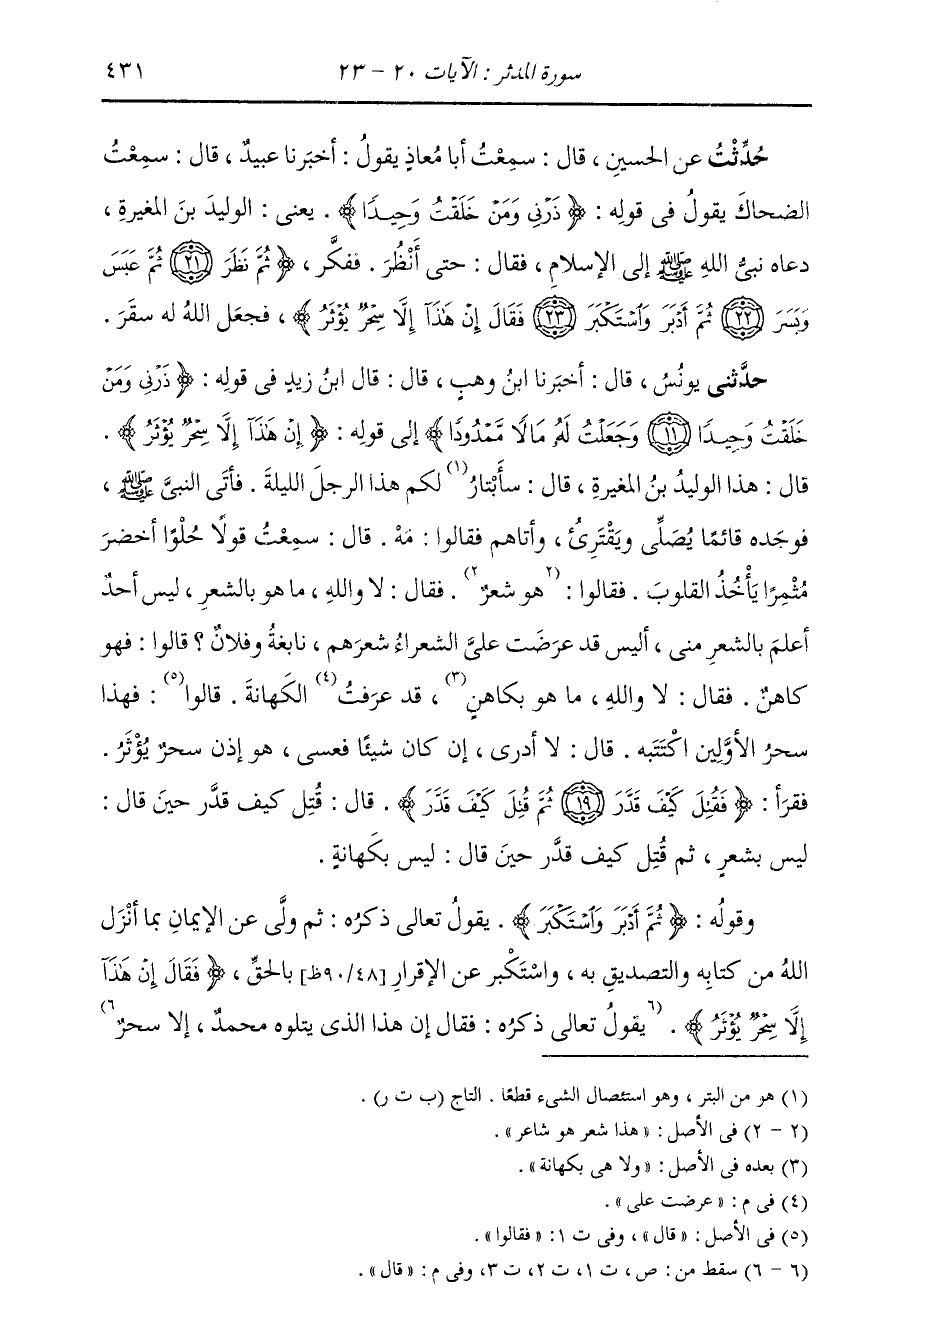 سورة المدثر : الآيات ٢٠ - ٢٣ ٤٣١
حُدِّثْتُ عن الحسينِ ، قال : سمِعْتُ أبا مُعاذٍ يقولُ : أخبَرنا عبيدٌ ، قال : سمِعْتُ
الضحاكَ يقولُ فى قولِه : ﴿ ذَرْنِي وَمَنْ خَلَقْتُ وَحِيدًا ﴾ . يعنى : الوليدَ بنَ المغيرةِ ،
دعاه نبىُّ اللهِ ﷺ إلى الإسلامِ ، فقال : حتى أَنْظُرَ . ففكَّر ، ﴿ ثُمَّ نَظَرَ (٢١) ثُمَّ عَبَسَ
وَبَسَرَ (٢٢) ثُمَّ أَدْبَرَ وَاسْتَكْبَرَ (٢٣) فَقَالَ إِنْ هَٰذَا إِلَّا سِحْرٌ يُؤْثَرُ ﴾ ، فجعَل اللهُ له سقَرَ .
حدَّثنى يونُسُ ، قال : أخبَرنا ابنُ وهبٍ ، قال : قال ابنُ زيدٍ فى قولِه : ﴿ ذَرْنِي وَمَنْ
خَلَقْتُ وَحِيدًا (١١) وَجَعَلْتُ لَهُ مَالًا مَّمْدُودًا ﴾ إلى قولِه : ﴿ إِنْ هَٰذَا إِلَّا سِحْرٌ يُؤْثَرُ ﴾ .
قال : هذا الوليدُ بنُ المغيرةِ ، قال : سأَبْتارُ(١) لكم هذا الرجلَ الليلةَ . فأتَى النبىَّ ﷺ ،
فوجَده قائمًا يُصَلِّى ويَقْتَرِئُ ، وأتاهم فقالوا : مَهْ . قال : سمِعْتُ قولًا حُلْوًا أخضرَ
مُثْمِرًا يَأْخُذُ القلوبَ . فقالوا : (٢هو شعرٌ٢) . فقال : لا واللهِ ، ما هو بالشعرِ ، ليس أحدٌ
أعلمَ بالشعرِ منى ، أليس قد عرَضَت علىَّ الشعراءُ شعرَهم ، نابغةُ وفلانٌ ؟ قالوا : فهو
كاهنٌ . فقال : لا واللهِ ، ما هو بكاهنٍ(٣) ، قد عرَفتُ(٤) الكَهانةَ . قالوا(٥) : فهذا
سحرُ الأوَّلِين اكْتَتَبه . قال : لا أدرى ، إن كان شيئًا فعسى ، هو إذن سحرٌ يُؤْثَرُ .
فقرَأ : ﴿ فَقُتِلَ كَيْفَ قَدَّرَ (١٩) ثُمَّ قُتِلَ كَيْفَ قَدَّرَ ﴾ . قال : قُتِل كيف قدَّر حينَ قال :
ليس بشعرٍ ، ثم قُتِل كيف قدَّر حينَ قال : ليس بكَهانةٍ .
وقولُه : ﴿ ثُمَّ أَدْبَرَ وَاسْتَكْبَرَ ﴾ . يقولُ تعالى ذكرُه : ثم ولَّى عن الإيمانِ بما أنْزَل
اللهُ من كتابِه والتصديقِ به ، واسْتَكْبر عن الإقرارِ [٩٠/٤٨ظ] بالحقِّ ، ﴿ فَقَالَ إِنْ هَٰذَا
إِلَّا سِحْرٌ يُؤْثَرُ ﴾ . (٦يقولُ تعالى ذكرُه : فقال إن هذا الذى يتلوه محمدٌ ، إلا سحرٌ٦)
(١) هو من البتر ، وهو استئصال الشىء قطعًا . التاج (ب ت ر) .
(٢ - ٢) فى الأصل : « هذا شعر هو شاعر » .
(٣) بعده فى الأصل : « ولا هى بكهانة » .
(٤) فى م : « عرضت على » .
(٥) فى الأصل : « قال » ، وفى ت ١ : « فقالوا » .
(٦ - ٦) سقط من : ص ، ت ١، ت ٢، ت ٣، وفى م : « قال » .